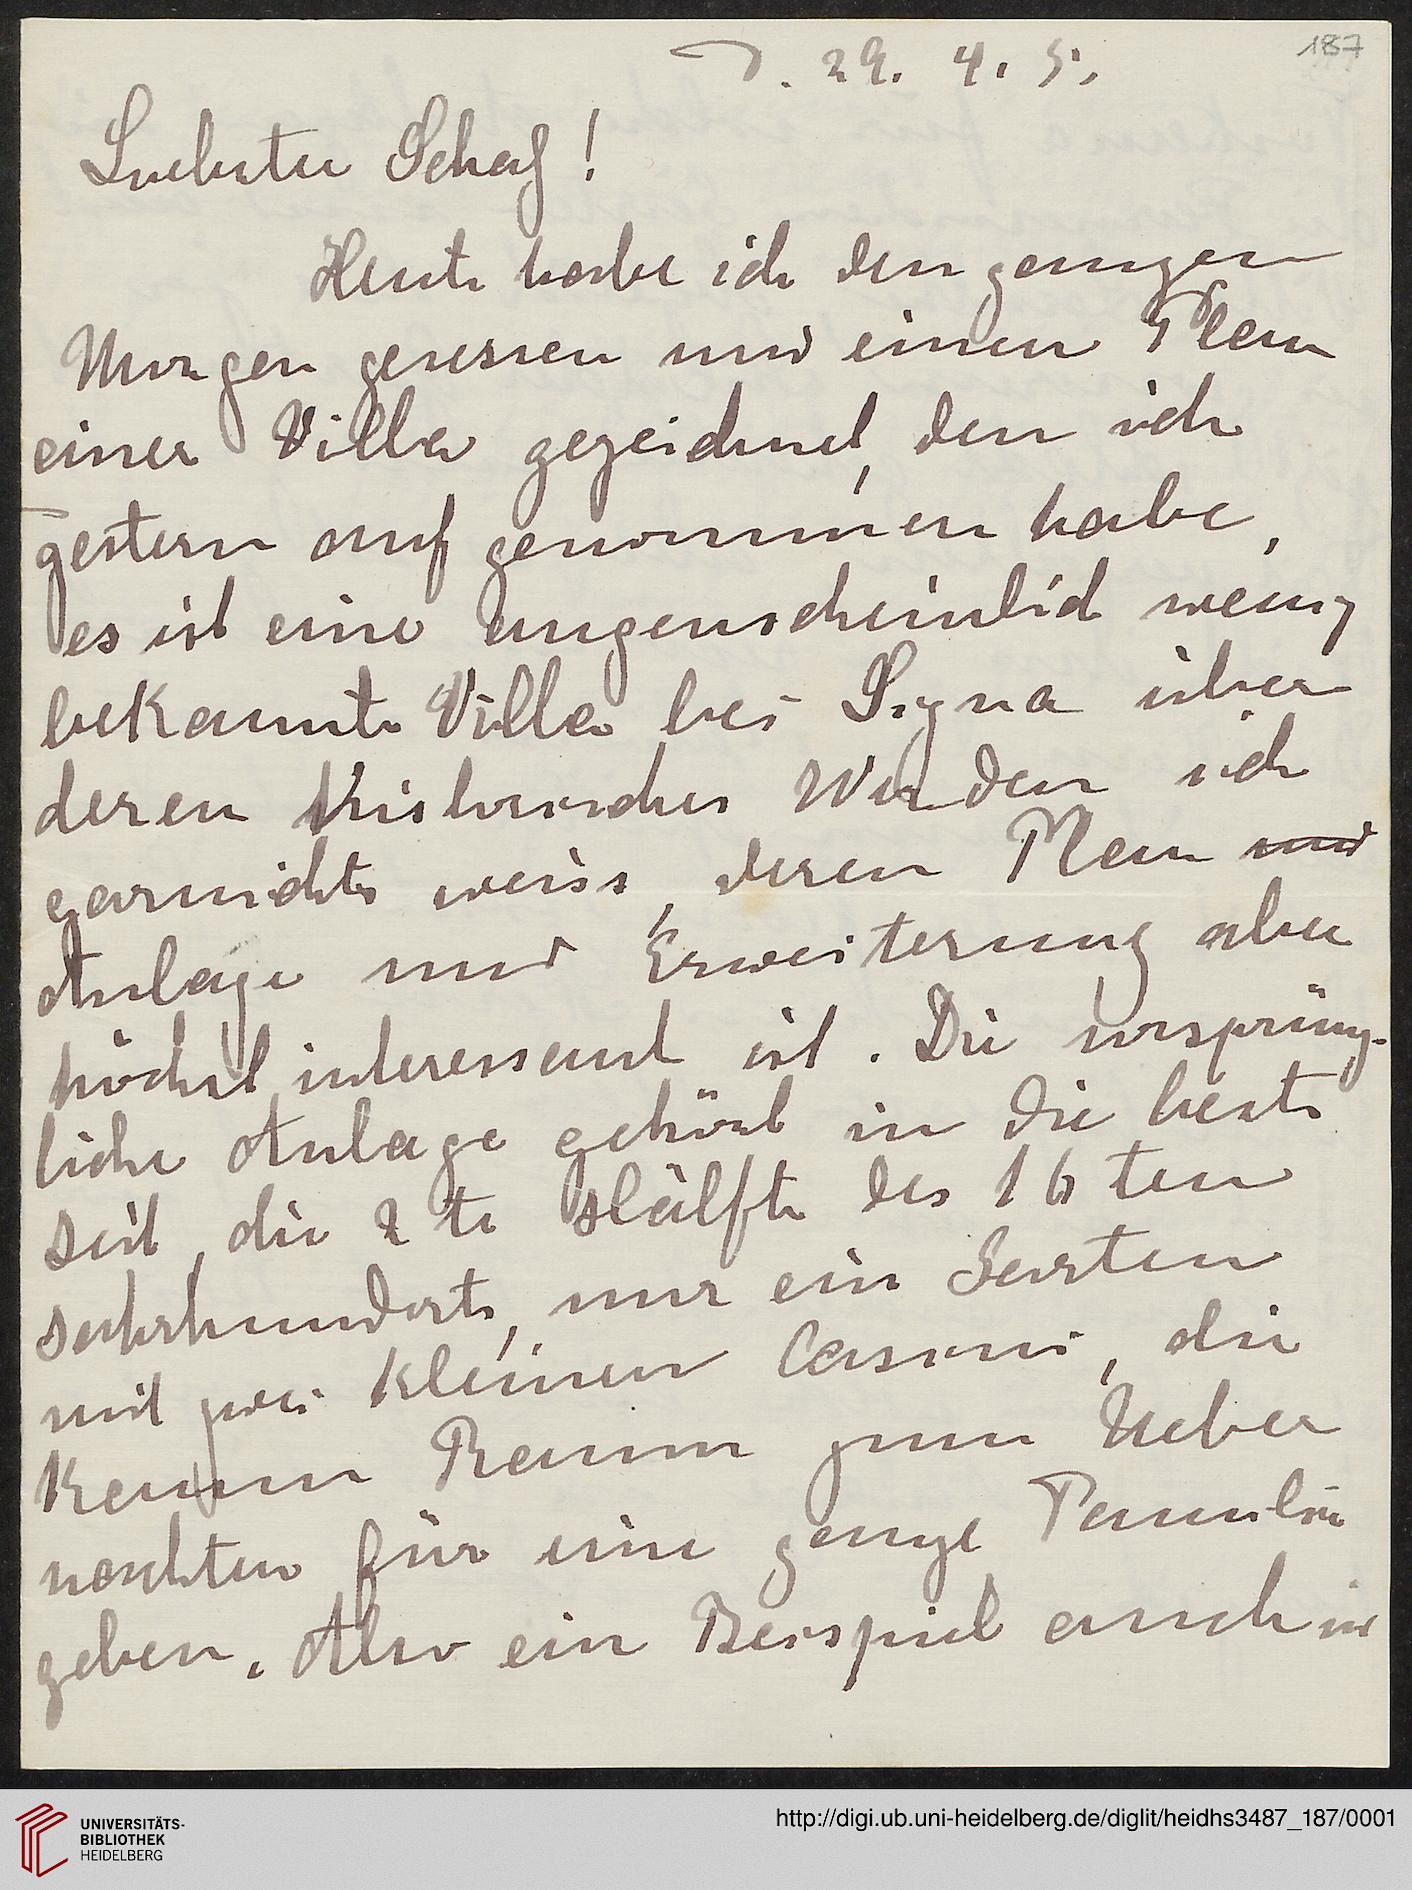 187
F. 29. 4. 5.
Liebster Schatz!
Heute habe ich den ganzen
Morgen gesessen und einen Plan
einer Villa gezeichnet, den ich
gestern aufgenommen habe,
es ist eine augenscheinlich wenig
bekannte Villa bei Signa über
deren historisches Werden ich
garnichts weiss, deren Plan und
Anlage und Erweiterung aber
höchst interessant ist. Die ursprüng-
liche Anlage gehört in die beste
Zeit, die 2te Hälfte des 16ten
Jahrhunderts, nur ein Garten
mit zwei kleinen Casini, die
kaum Raum zum Ueber
nachten für eine ganze Familie
geben. Also ein Beispiel auch in
UNIVERSITÄTS-
BIBLIOTHEK
HEIDELBERG
http://digi.ub.uni-heidelberg.de/diglit/heidhs3487_187/0001